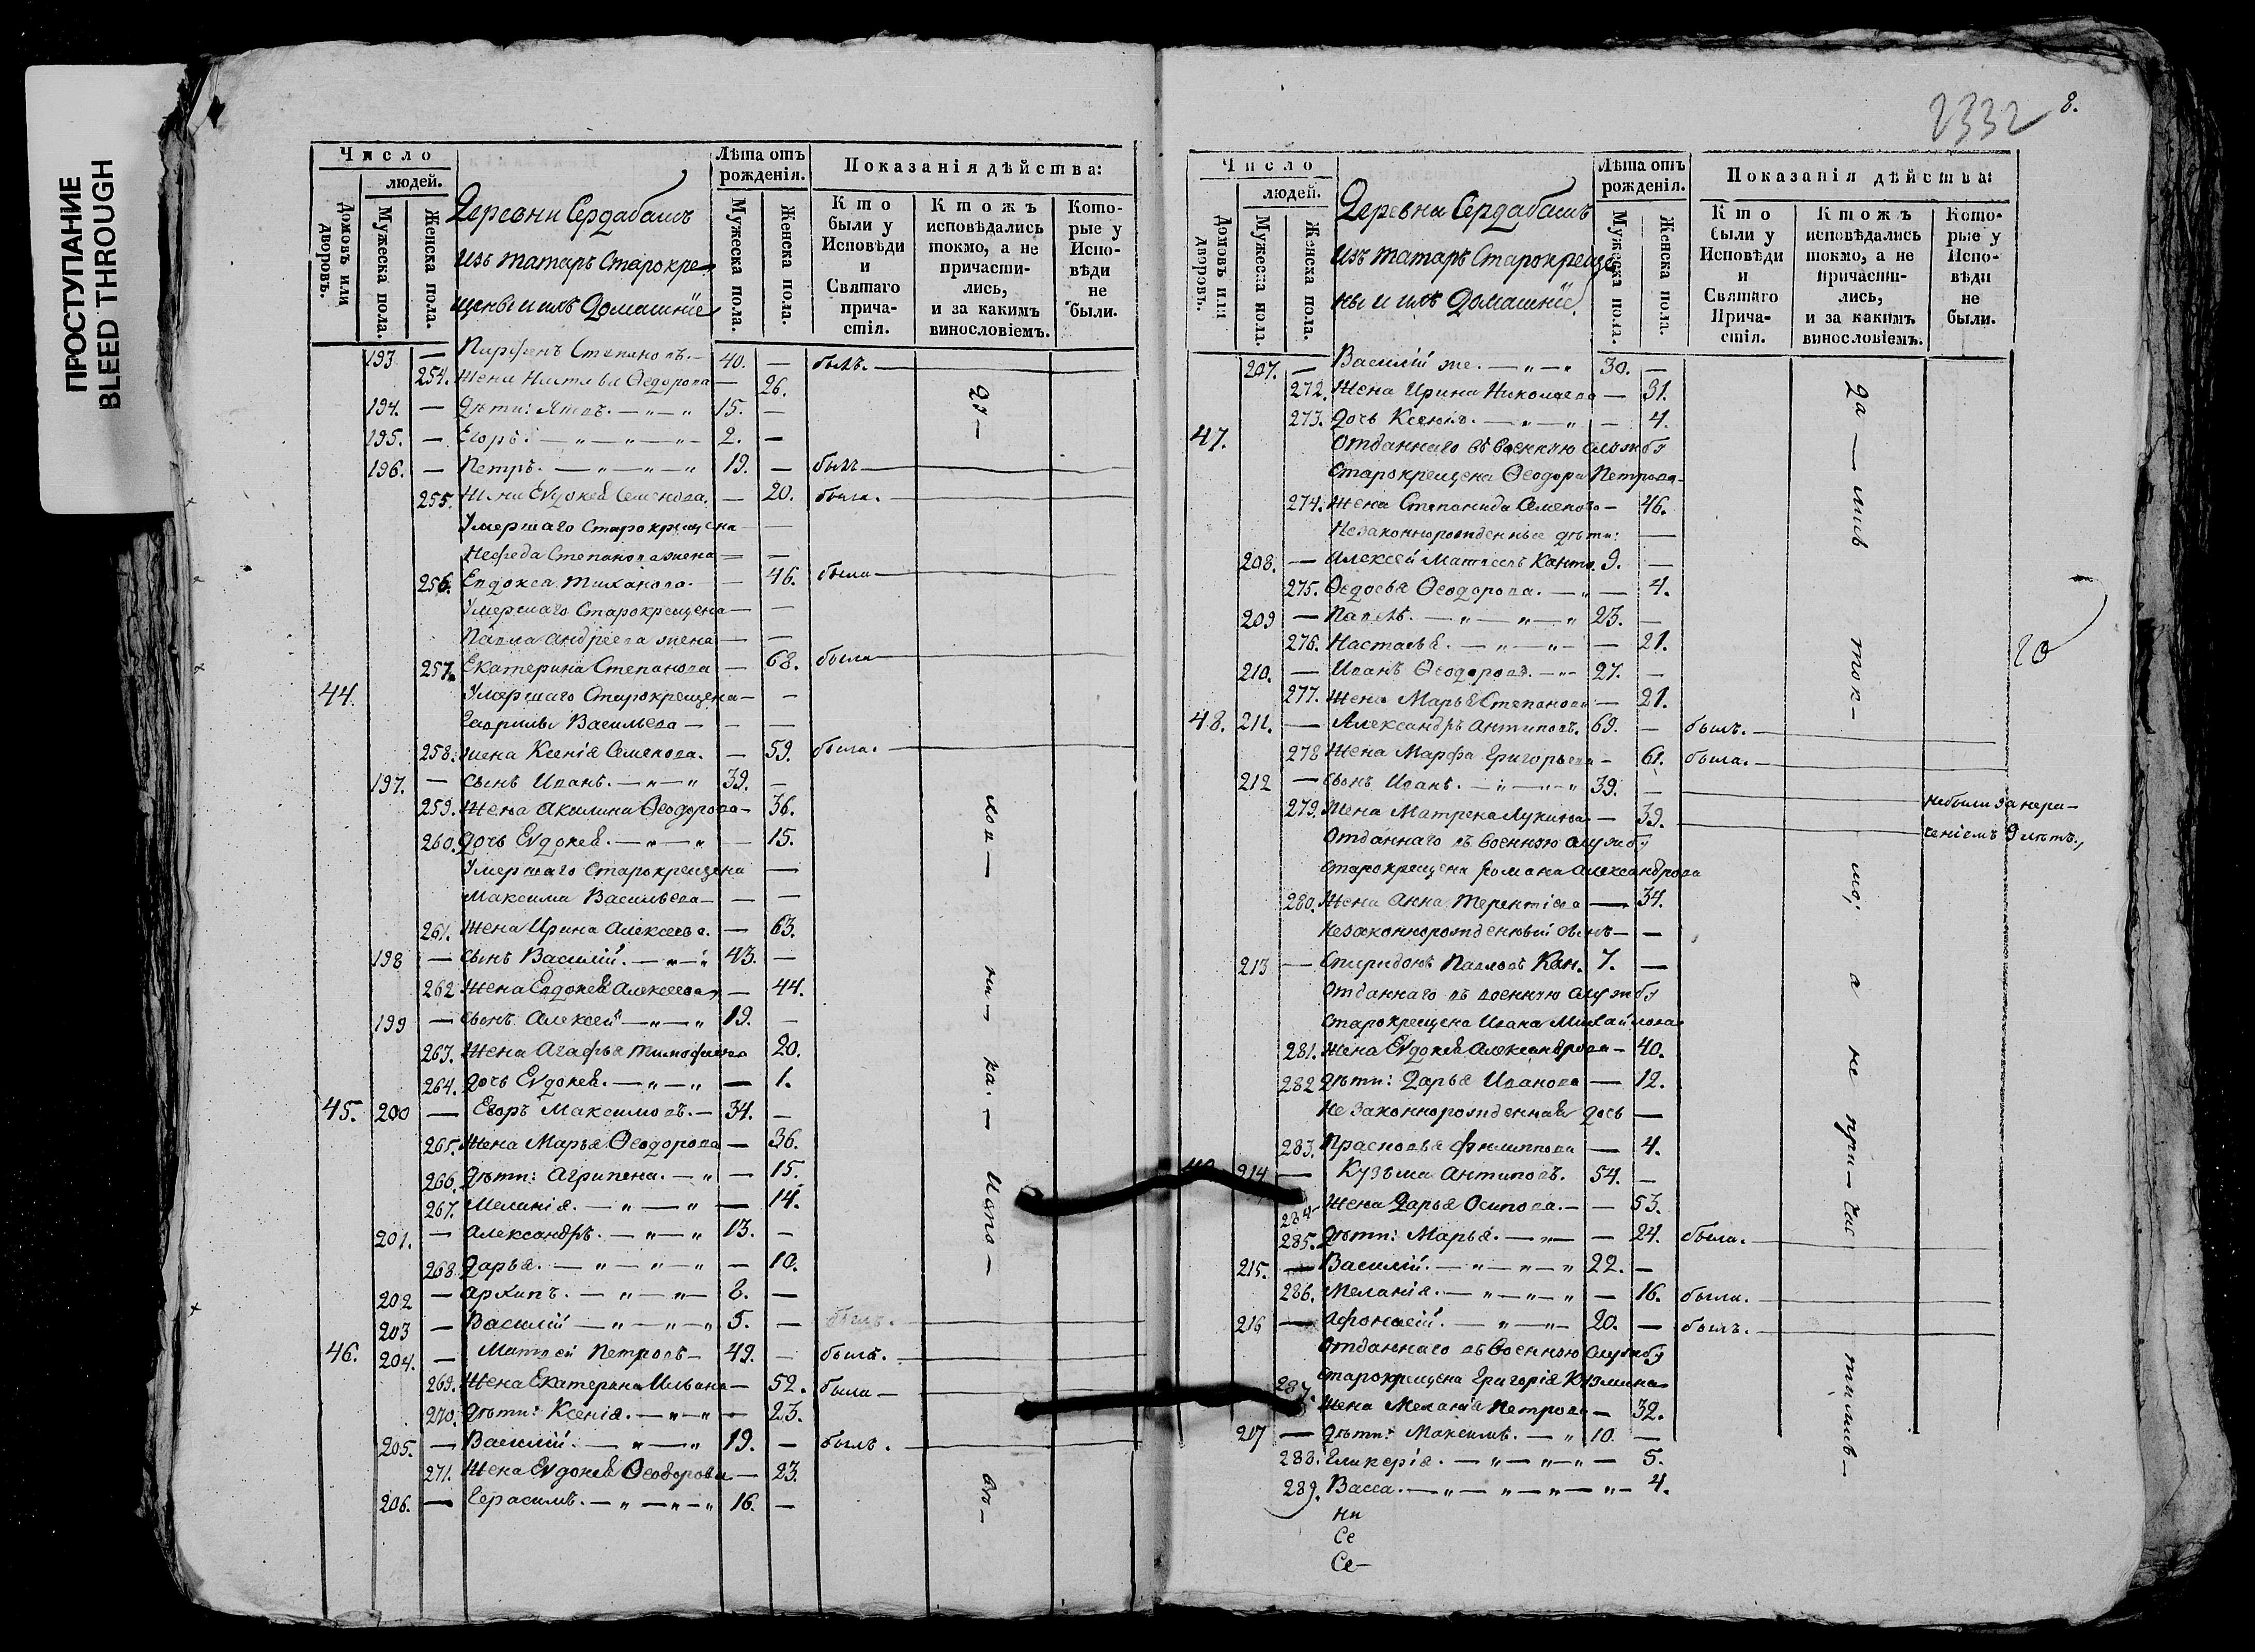 ПРОСТУПАНИЕ
BLEED THROUGH
Число
людей.
Домовъ или дворовъ.
Мужеска пола.
Женска пола.
Деревни Сердабашъ
изъ татаръ Старокре-
щены и ихъ Домашнїе
Лѣта отъ рожденія.
Мужеска пола.
Женска пола.
Показанія дѣйства:
Кто были у Исповѣди и Святаго прича-стія.
Ктожъ исповѣдались токмо, а не причасти-лись, и за какимъ винословіемъ.
Кото-рые у Испо-вѣди не были.
193. — Парфенъ Степановъ. — 40. — былъ.
254. Жена Настасья Ѳедорова — 26.
194. — Дѣти: Яковъ. — „ — „ 15. —
195. — Егоръ. — „ — „ — „ 2. —
196. — Петръ. — „ — „ — „ 19. — былъ
255. Жена Еѵдокея Семенова. — 20. была.
Умершаго Старокрещена — —
Нефеда Степанова жена — —
256. Евдокеа — 46. была
Умершаго Старокрещена — —
Павла Андреева жена — —
257. Екатерина Степанова — 68. была
44. Умершаго Старокрещена — —
Гаврилы Васильева — — —
258. жена Ксенія Семенова. — 59. была.
197. — сынъ Иванъ. — „ — „ 39. —
259. Жена Акилина Ѳеодорова — 36.
260. Дочь Еѵдокея. — „ — „ — 15.
Умершаго Старокрещена —
Максима Васильева — — —
261. Жена Ирина Алексеева. — 63.
198 — сынъ Василій. — „ — „ 43. —
262 Жена Евдокея Алексеева — 44.
199 — сынъ Алексей — „ — „ 19. —
263. Жена Агафья Тимофеева 20.
264. дочь Еѵдокея. — „ — „ — 1.
45. 200 — Егоръ Максимовъ. — 34. —
265. Жена Марья Ѳеодорова — 36.
266. Дѣти: Агрипена. — „ — 15.
267. Меланія. — „ — „ — 14.
201. — Александръ. — „ — „ 13. —
268. Дарья. — „ — „ — „ — 10.
202 — Архипъ. — „ — „ — 8. —
203 — Василій — „ — „ — „ 5. — былъ.
46. 204. — Матвей Петровъ — 49. — былъ.
269. Жена Екатерина Ильина — 52. была —
270. Дѣти: Ксенія. — „ — „ — 23.
205. — Василій. — „ — „ 19. — былъ.
271. Жена Еѵдокея Ѳеодорова — 23.
206. — Герасимъ. — „ — „ — „ 16. —
2332
8.
Число
людей.
Домовъ или дворовъ.
Мужеска пола.
Женска пола.
Деревни Сердабашъ
изъ татаръ Старокреще
ны и ихъ Домашнїе.
Лѣта отъ рожденія.
Мужеска пола.
Женска пола.
Показанія дѣйства:
Кто были у Исповѣди и Святаго Прича-стія.
Ктожъ исповѣдались токмо, а не причасти-лись, и за какимъ винословіемъ.
Кото-рые у Испо-вѣди не были.
207. — Василій же. — „ — „ 30. —
272. Жена Ирина Николаева — 31.
273. Дочь Ксенія. — „ — „ — 4.
47. Отданнаго въ военную службу
Старокрещена Ѳеодора Петрова
274. Жена Степанида Семенова — 46.
Незаконнорожденные дѣти: —
208. — Алексей Матвеевъ Канто. 9. —
275. Ѳедосья Ѳеодорова. — „ — 4.
209 — Павелъ. — „ — „ — „ 23. —
276. Настасья. — „ — „ — — 21.
210. — Иванъ Ѳеодоровъ. — „ — 27. —
277. Жена Марья Степанова — 21.
48. 211. — Александръ Антиповъ. 69. — былъ.
278 Жена Марфа Григорьева — 61. была.
212 — сынъ Иванъ. — „ — „ — „ 39. —
279. Жена Матрена Лукина — 39.
не были за нера-
ченіемъ 9 лѣтъ.
Отданнаго въ военную службу
старокрещена Романа Александрова
280. Жена Анна Терентіева — 34.
Незаконнорожденный сынъ — —
213 — Спиридонъ Павловъ Кан. 7. —
Отданнаго въ военную службу
Старокрещена Ивана Михайлова
281. Жена Еѵдокея Александрова — 40.
282 Дѣти: Дарья Иванова — 12.
Незаконнорожденная дочь —
283. Прасковья Филиппова — 4.
214 — Кузьма Антиповъ. 54. —
284 Жена Дарья Осипова. — — 53.
285. Дѣти: Марья. — „ — — 24. была.
215. — Василій. — „ — „ — „ 22. —
286. Меланія. — „ — „ — „ — 16. была.
216 — Афонасій. — „ — „ — 20. — былъ.
Отданнаго въ военную службу
старокрещена Григорія Кузмина
287. Жена Меланія Петрова — 32.
217 — Дѣти: Максимъ. — „ 10. —
288. Гликерія. — „ — „ — „ — 5.
289. Васса. — „ — „ — „ — „ — 4.
ни
Се
Се —
да — лись ток — мо, а не при — час тились —